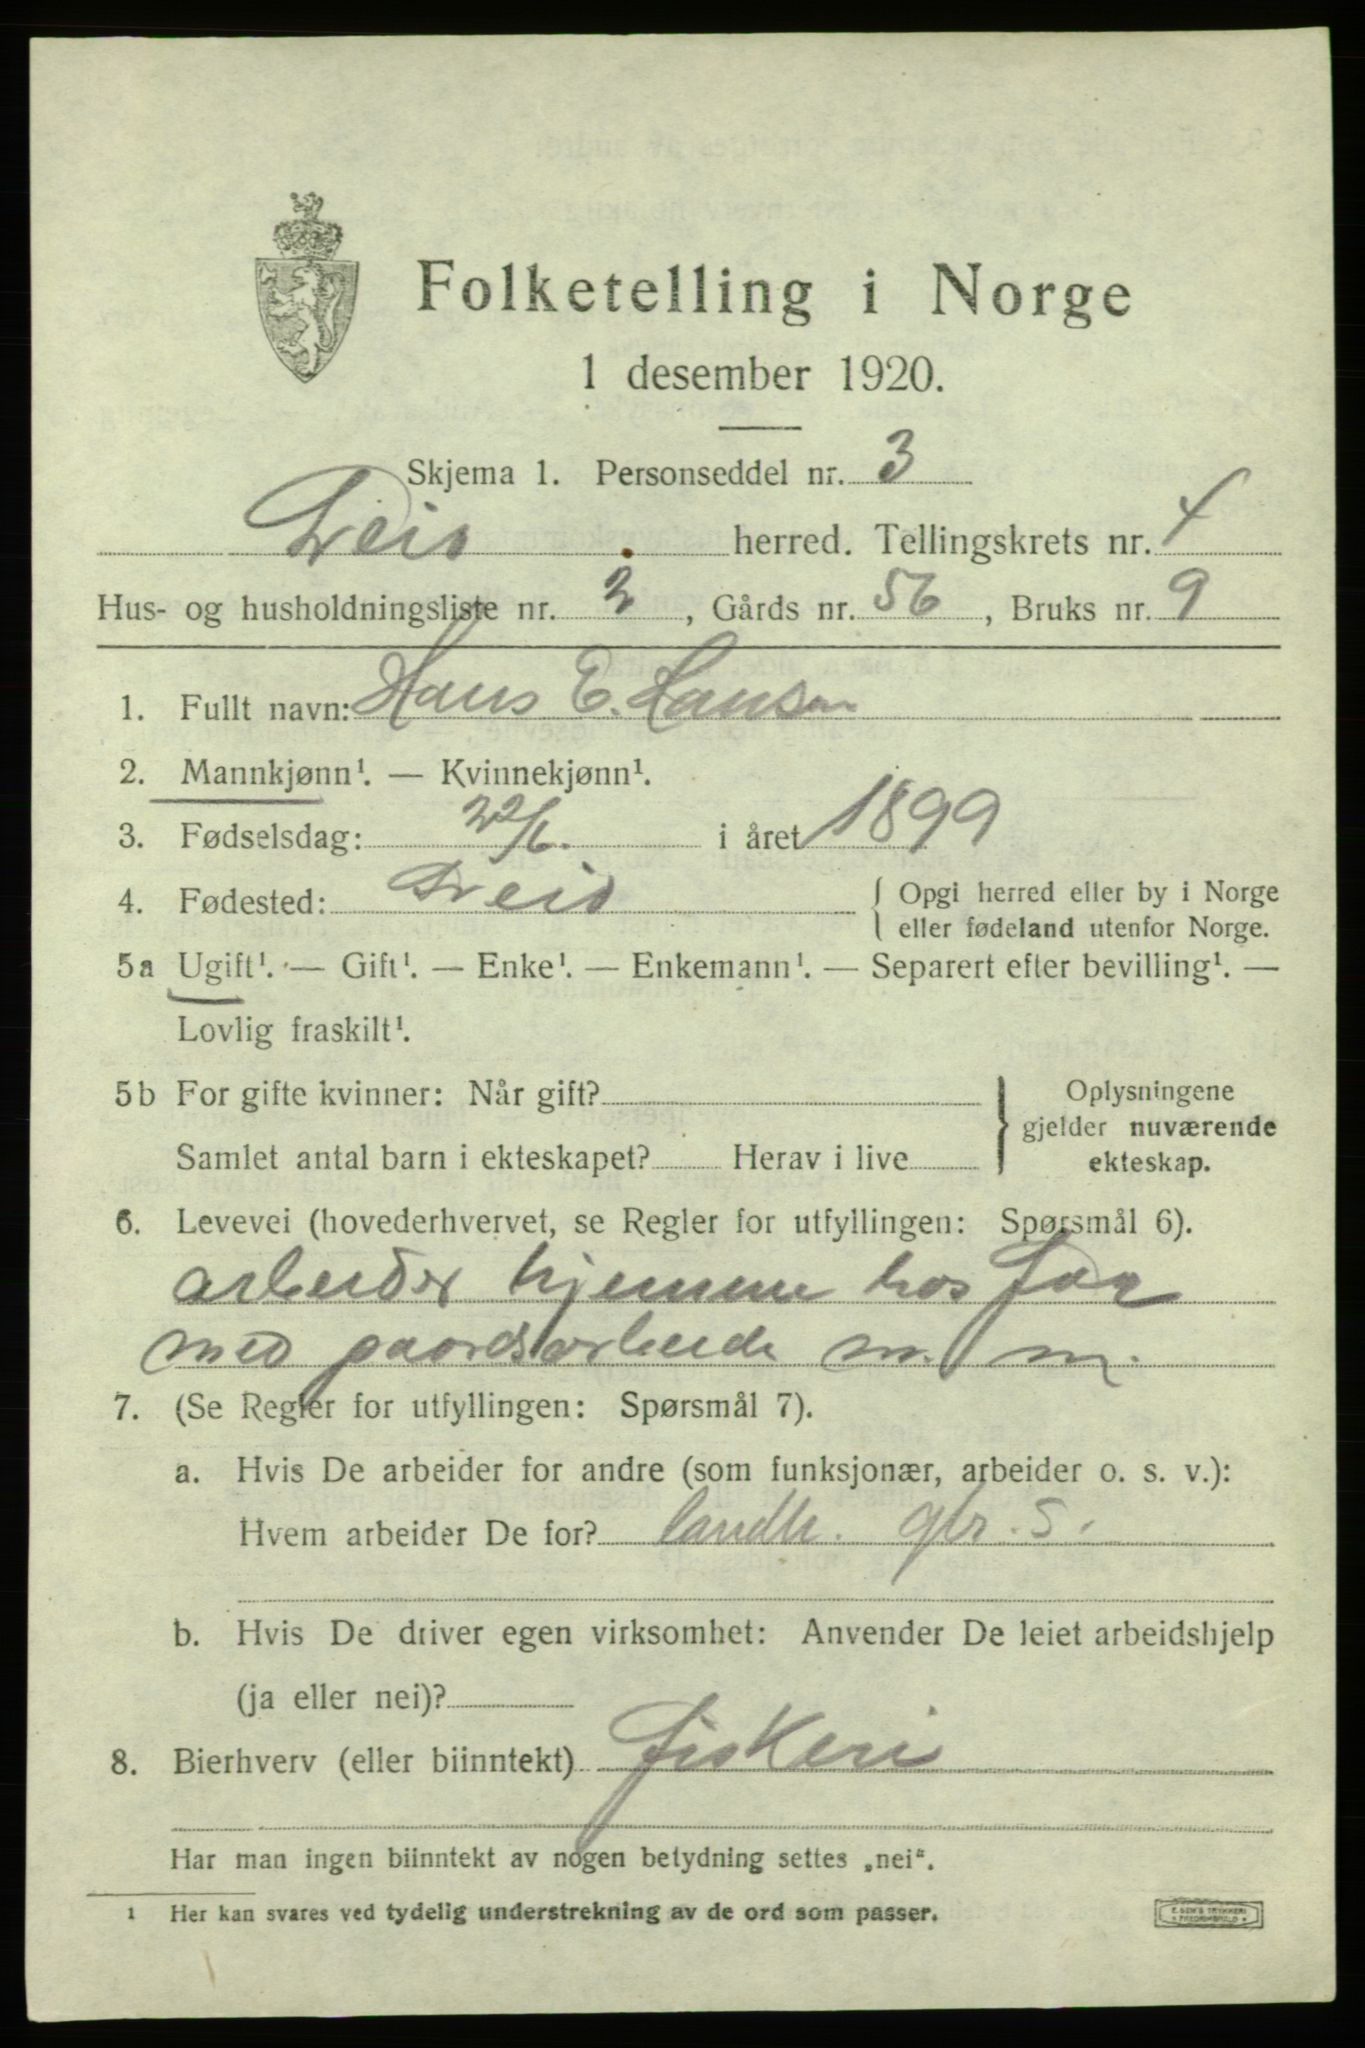 Folketelling i Norge
1 desember 1920.
Skjema 1. Personseddel nr. 3
herred. Tellingskrets nr. 4
Hus- og husholdningsliste nr. 2, Gårds nr. 56, Bruks nr. 9
1. Fullt navn: Hans E. Lansen
2. Mannkjønn¹. — Kvinnekjønn¹.
3. Fødselsdag: 22/6. i året 1899
4. Fødested: { Opgi herred eller by i Norge
eller fødeland utenfor Norge.
5a Ugift¹. — Gift¹. — Enke¹. — Enkemann¹. — Separert efter bevilling¹. —
Lovlig fraskilt¹.
5b For gifte kvinner: Når gift? } Oplysningene
gjelder nuværende
Samlet antal barn i ekteskapet? Herav i live
ekteskap.
6. Levevei (hovederhvervet, se Regler for utfyllingen: Spørsmål 6).
arbeider hjemme hos Far
med gaardsarbeide m. m.
7. (Se Regler for utfyllingen: Spørsmål 7).
a. Hvis De arbeider for andre (som funksjonær, arbeider o. s. v.):
Hvem arbeider De for? landb. gbr. s.
b. Hvis De driver egen virksomhet: Anvender De leiet arbeidshjelp
(ja eller nei)?
8. Bierhverv (eller biinntekt) Fiskeri
Har man ingen biinntekt av nogen betydning settes „nei“.
¹ Her kan svares ved tydelig understrekning av de ord som passer.